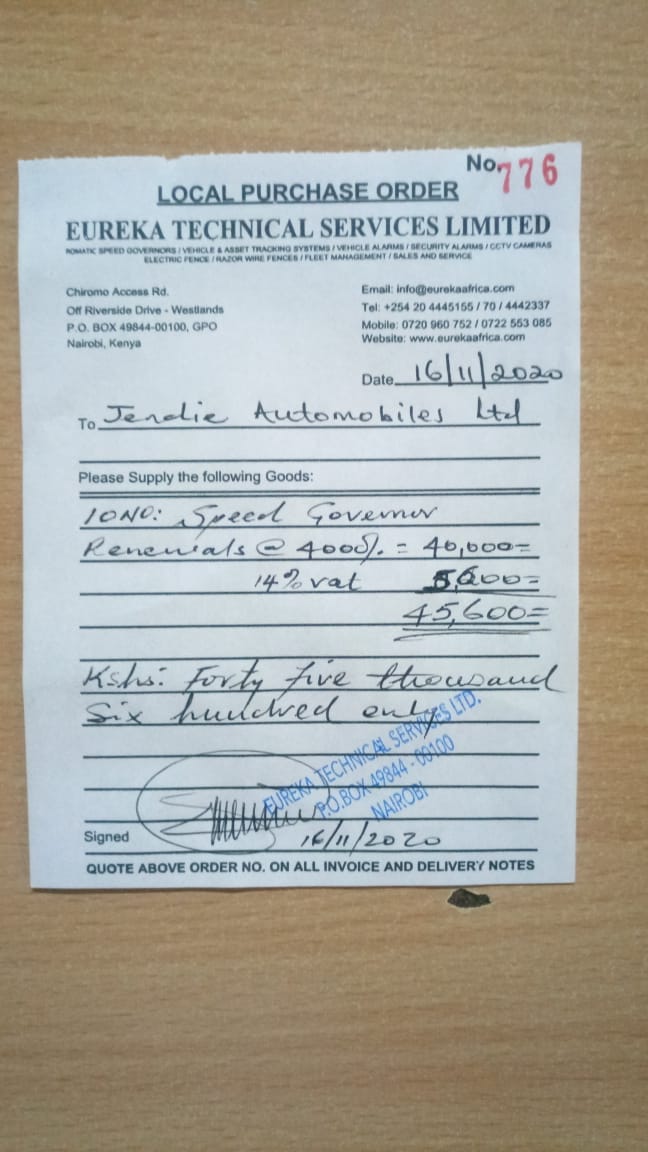 No. 776
LOCAL PURCHASE ORDER
EUREKA TECHNICAL SERVICES LIMITED
ROMATIC SPEED GOVERNORS / VEHICLE & ASSET TRACKING SYSTEMS / VEHICLE ALARMS / SECURITY ALARMS / CCTV CAMERAS
ELECTRIC FENCE / RAZOR WIRE FENCES / FLEET MANAGEMENT / SALES AND SERVICE
Chiromo Access Rd.
Off Riverside Drive - Westlands
P.O. BOX 49844-00100, GPO
Nairobi, Kenya
Email: info@eurekaafrica.com
Tel: +254 20 4445155 / 70 / 4442337
Mobile: 0720 960 752 / 0722 553 085
Website: www.eurekaafrica.com
Date 16/11/2020
To Jendie Automobiles Ltd
Please Supply the following Goods:
10NO: Speed Governor
Renewals @ 4000/. = 40,000=
14% vat 5,600=
45,600=
Kshs: Forty five thousand
Six hundred only
EUREKA TECHNICAL SERVICES LTD.
P.O.BOX 49844 - 00100
NAIROBI
Signed 16/11/2020
QUOTE ABOVE ORDER NO. ON ALL INVOICE AND DELIVERY NOTES